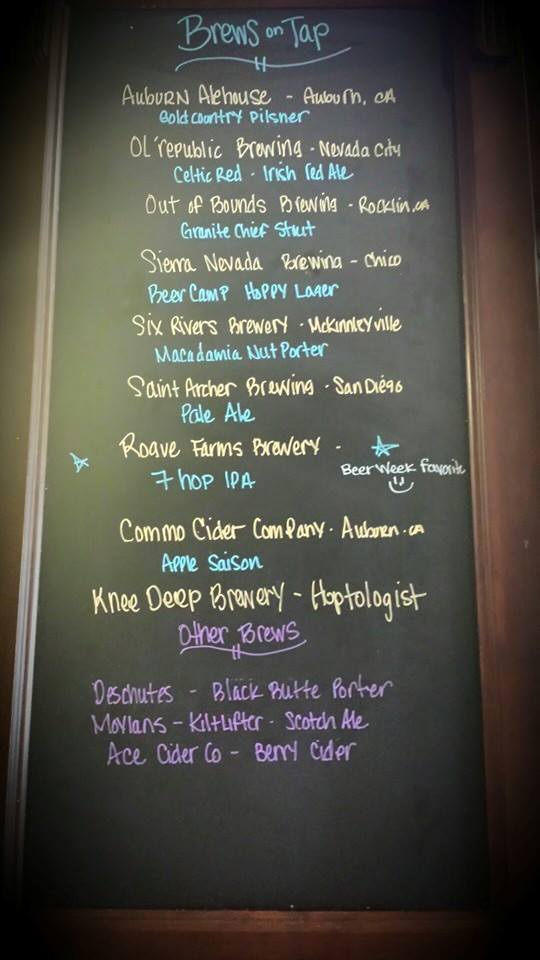 Brews on Tap
Auburn Alehouse - Auburn, CA
Gold Country Pilsner
OL' republic Brewing - Nevada City
Celtic Red - Irish Red Ale
Out of Bounds Brewing - Rocklin, CA
Granite Chief Stout
Sierra Nevada Brewing - Chico
Beer Camp Hoppy Lager
Six Rivers Brewery - McKinnleyville
Macadamia Nut Porter
Saint Archer Brewing - San Diego
Pale Ale
Roave Farms Brewery -
Beer Week Favorite
7 hop IPA
Commo Cider Company - Auburn - CA
Apple Saison
Knee Deep Brewery - Hoptologist
Other Brews
Deschutes - Black Butte Porter
Moylans - Kiltlifter - Scotch Ale
Ace Cider Co - Berry Cider